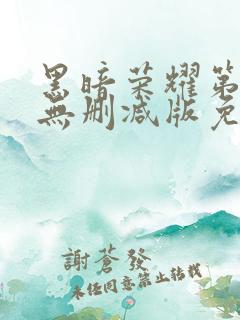 黑暗荣耀第
無删减版免
謝蒼發
未经同意禁止转载